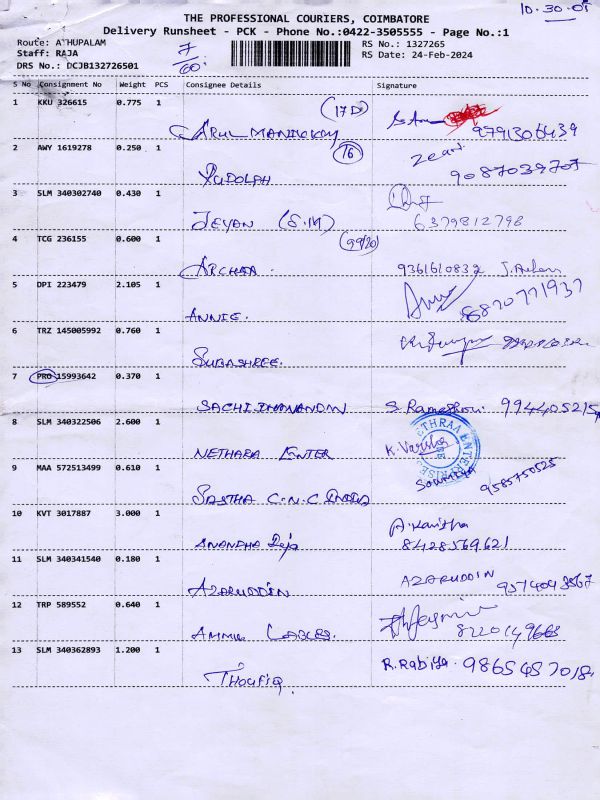 10.30.01
THE PROFESSIONAL COURIERS, COIMBATORE
Delivery Runsheet - PCK - Phone No.:0422-3505555 - Page No.:1
Route: ATHUPALAM
7/60
RS No.: 1327265
Staff: RAJA
RS Date: 24-Feb-2024
DRS No.: DCJB132726501
S No Consignment No Weight PCS Consignee Details Signature
1 KKU 326615 0.775 1
(17D)
ARUL MANICKAM 9791306439
2 AWY 1619278 0.250 1
16
RUDOLPH 9087039707
3 SLM 340302740 0.430 1
JEYAN (S.M) 6379812798
4 TCG 236155 0.600 1
(99/20)
ARCHAA. 9361610832
5 DPI 223479 2.105 1
ANNIE. 8870771937
6 TRZ 145005992 0.760 1
SUBASHREE.
7 PRO 15993642 0.370 1
SACHIDHANANDAN S. Rameshwari 994405215
8 SLM 340322506 2.600 1
NETHARA ENTER K. Varsha
9 MAA 572513499 0.610 1
SASTHA C.N.C INDIA Soumiya 9585750525
10 KVT 3017887 3.000 1
ANANDHA Raja A. Kavitha 8428569621
11 SLM 340341540 0.180 1
AZARUDDIN AZARUDDIN
12 TRP 589552 0.640 1
AMMU LABLES. 8220149663
13 SLM 340362893 1.200 1
THOUFIQ. R. Rabiya. 9865457018